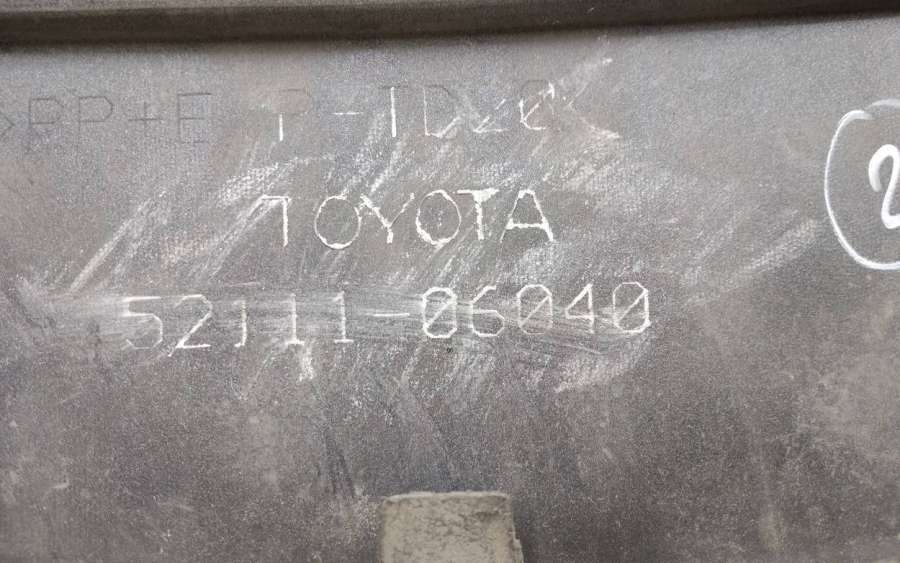 >PP+E P-TD20<
TOYOTA
52111-06040
2